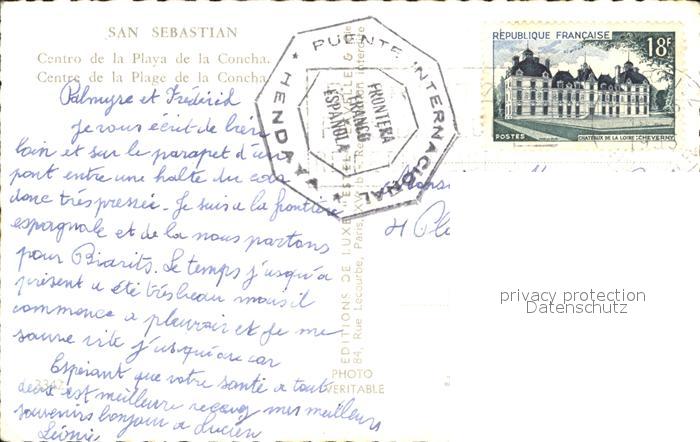 SAN SEBASTIAN
Centro de la Playa de la Concha.
Centre de la Plage de la Concha.
Palmyre et Frédéric
Je vous écrit de bien
loin et sur le parapet d'un
pont entre une halte du car
donc très pressée. Je suis a la frontière
espagnole et de la nous partons
pour Biarits. Le temps j'usqu'a
présent a été très beau mais il
commence a pleuvoir et je me
sauve vite j'usqu'au car
Espérant que votre santé a tout
deux est meilleure recevez mes meilleurs
souvenirs bonjour a Lucien
Léonie
3347
PHOTO
VERITABLE
EDITIONS DE LUXE
84, Rue Lecourbe, Paris, XV
PUENTE INTERNACIONAL
HENDAYA
FRONTERA
FRANCO
ESPAÑOLA
RÉPUBLIQUE FRANÇAISE
18F
POSTES
CHATEAUX DE LA LOIRE: CHEVERNY
privacy protection
Datenschutz